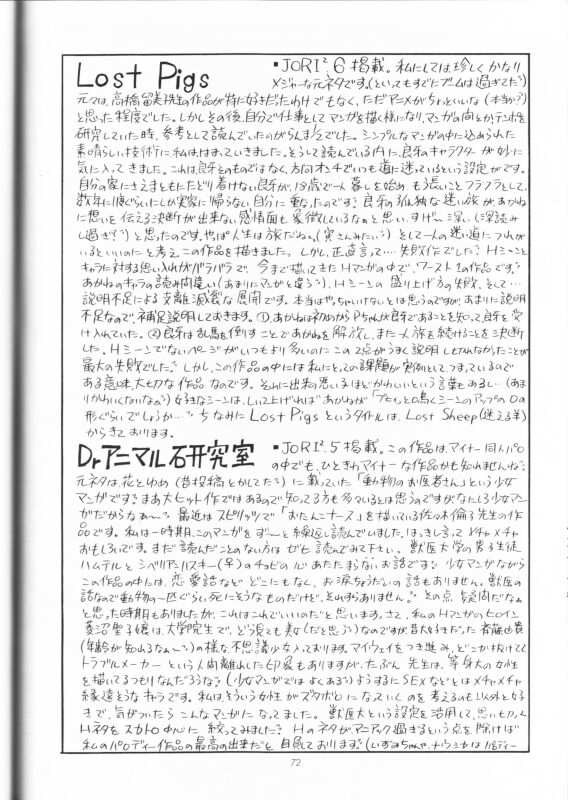 Lost Pigs
・JORI².6掲載。私にしては珍しくかなり
メジャーな元ネタです。(といってもすでにブームは過ぎてた?)
元々は、高橋留美先生の作品が特に好きだったわけでもなく、ただアニメがちょっといいな(本当か?)
と思った程度でした。しかしその後、自分で仕事としてマンガを描く様になり、マンガの向上やテンポを
研究していた時、参考として読んでいたのがらんま½でした。シンプルなマンガの中に込められた
素晴らしい技術に私は、はまっていきました。そうして読んでいる内に、良牙のキャラクターが妙に
気に入ってきました。これは、良牙そのものではなく、方向オンチでいつも道に迷っているという設定がです。
自分の家にさえまともにたどり着けない良牙が、18歳で一人暮しを始め もう長いことフラフラとして、
数年に1度ぐらいしか実家に帰らない自分に重なったのです? 良牙の孤独な迷い旅が、あかね
に想いを伝える決断が出来ない感情面も象徴しているなぁと思い、すげ〜深い(深読み
し過ぎ?)と思ったのです。やっぱ人生は旅だねぇ、(寅さんみたい)そして一人の迷い道につれがい
るといいのにと考えこの作品を描きました。しかし、正直言って…失敗作でした? Hシーンと
キャラに対する思い入れがバラバラで、今まで描いてきたHマンガの中で、ワースト1の作品です?
あかねのキャラの読み間違い(あまりにマンガと違う?)、Hシーンの盛り上げ方の失敗、そして…
説明不足による支離滅裂な展開です。本当はやっちゃいけないとは思うのですが、あまりに説明
不足なので、補足説明しておきます。①、あかねは初めからPちゃんが良牙であることを知って良牙を受
け入れていた。②良牙は乱馬を倒すことであかねを解放し、また一人旅を続けることを決断
した。Hシーンでないページがいつもより多いのにこの2点がうまく説明しきれなかったことが
最大の失敗でした? しかし、この作品の中には私にとっての課題が実例としてつまっているので
ある意味、大切な作品なのです。それに出来の悪い子ほどかわいいという言葉もあるし…(あま
りかわいくないなぁ?)好きなシーンは、しいて上げればあかねが「プヒッ」と鳴くシーンのアップの口の
形ぐらいでしょうか…? ちなみにLost Pigsというタイトルは、Lost Sheep(迷える羊)
からきております。
Dr.アニマル石研究室
・JORI².5掲載。この作品は、マイナー同人パロ
の中でも、ひときわマイナーな作品かも知れませんね?
元ネタは花とゆめ(昔投稿とかしてた?)に載っていた「動物のお医者さん」という少女
マンガです? まあ大ヒット作ではあるので知ってる方も多々いるとは思うのですがなにしろ少女マン
ガだからなぁ〜? 最近はスピリッツで「おたんこナース」を描いている佐々木倫子先生の作
品です。私は一時期、このマンガをず〜っと繰返し読んでいました。はっきし言ってメチャメチャ
おもしろいです。まだ読んだことのない方は ゼヒ読んでみて下さい。獣医大学の男子生徒
ハムテルとシベリアンハスキー(♀)のチョビの心あたたまらないお話です? 少女マンガながら
この作品の中には、恋愛話など どこにもなく、お涙ちょうだいの話もありません。獣医の
話なので動物の一匹ぐらい死にそうなものだけど、それすらありません? その点 疑問だなぁ
と思った時期もありましたが、これはこれでいいのだと思います。さて、私のHマンガのヒロイン
菱沼聖子嬢は、大学院生で、どう見ても美女(だと思う?)なのですが昔大好きだった斉藤由貴
(年齢が知れるなぁ〜?)の様な不思議少女入っております。マイウェイをつき進み、どこか抜けてて
トラブルメーカーという人間離れした印象もありますが、たぶん先生は、等身大の女性
を描いてるつもりなんだろうなぁ?(少女マンガではよくある?)ようするにSEXなどとはメチャメチャ
縁遠そうなキャラです。私は、そういう女性がズタボロになっていくのを考えるのも以外と好
きで、気がついたらこんなマンガになってました。獣医大という設定を活用して、思いっきり
Hネタをスカトロ中心に絞ってみました? Hのネタがマニアック過ぎるという点を除けば
私のパロディー作品の最高の出来だと自負しております?(いずみちゃんや、ナウシカはパロディー
72